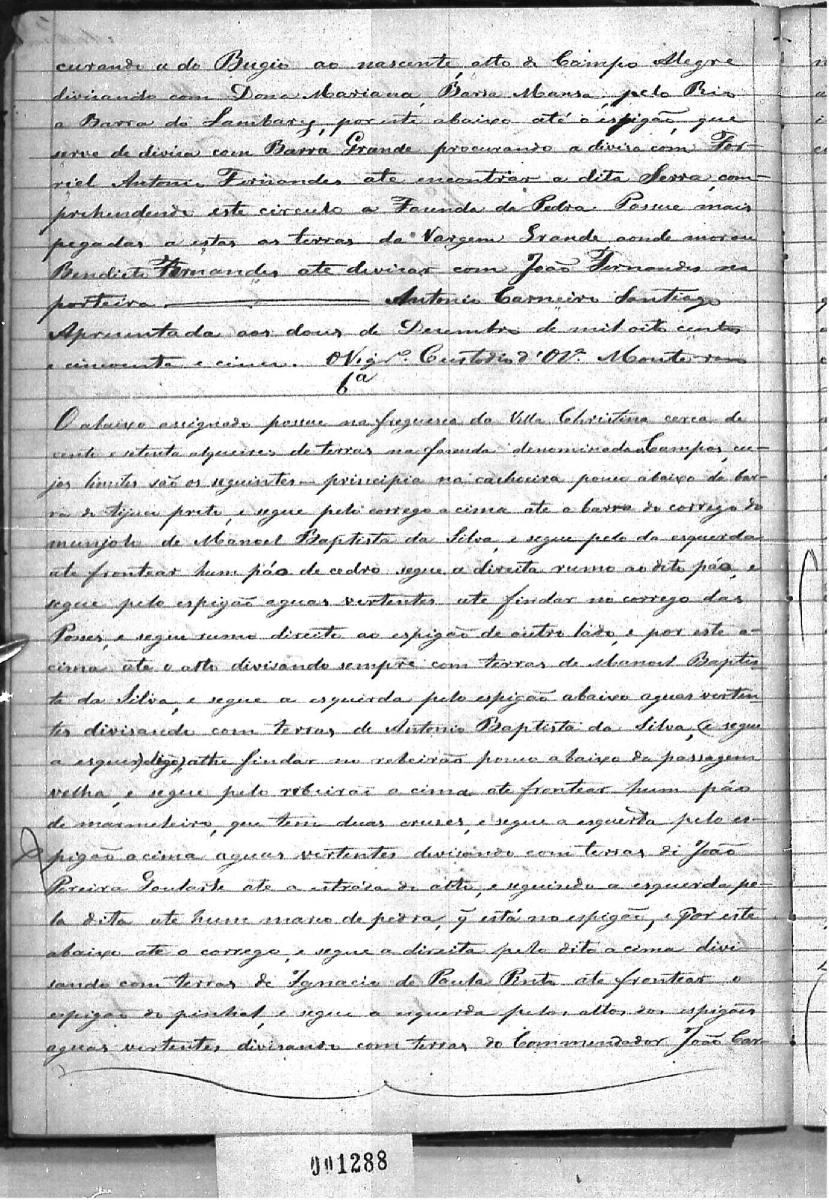 curando a do Bugio ao nascente, alto do Campo Alegre
divisando com Dona Mariana, Barra Mansa, pelo Rio
a Barra do Lambary, por este abaixo até o espigão, que
serve de divisa com Barra Grande procurando a divisa com
Antonio Fernandes ate encontrar a dita Serra, com-
prehendendo este circulo a Fazenda da Pedra. Possue mais
pegadas a estas as terras da Vargem Grande aonde morou
Benedicto Fernandes ate divisar com João Fernandes na
porteira. Antonio Carneiro Santiago
Apresentada aos dous de Dezembro de mil oito centos
e cincoenta e cinco. O Vigr.º Custodio d'Olv.ª Monte-raso
6ª
O abaixo assignado possue na freguesia da Villa Christina cerca de
cento e setenta alqueires de terras na fazenda denominada Campos, cu-
jos limites são os seguintes principia na cachoeira pouco abaixo da bar-
ra do tijuco preto, e segue pelo corrego a cima ate a barra do corrego do
munjolo de Manoel Baptista da Silva, e segue pelo da esquerda
ate frontear hum páo de cedro segue a direita rumo ao dito páo, e
segue pelo espigão aguas vertentes ate findar no corrego das
Posses, e segue rumo direito ao espigão de outro lado, e por este a-
cima ate o alto divisando sempre com terras de Manoel Baptis-
ta da Silva, e segue a esquerda pelo espigão abaixo aguas verten-
tes divisando com terras de Antonio Baptista da Silva, (e segue
a esquer) digo, athe findar no rebeirão pouco abaixo da passagem
velha, e segue pelo rebeirão a cima ate frontear hum páo
de marmeleiro, que tem duas cruses, e segue a esquerda pelo es-
pigão a cima aguas vertentes divisando com terras de João
Pereira Goularte ate a estrada do alto, e seguindo a esquerda pe-
la dita ate hum marco de pedra, q̃ está no espigão, e por este
abaixo ate o corrego, e segue a direita pelo dito a cima divi-
sando com terras de Ignacio de Paula Pinto ate frontear o
espigão do pinhal, e segue a esquerda pelos altos dos espigões
aguas vertentes divisando com terras do Commendador João Car-
001288